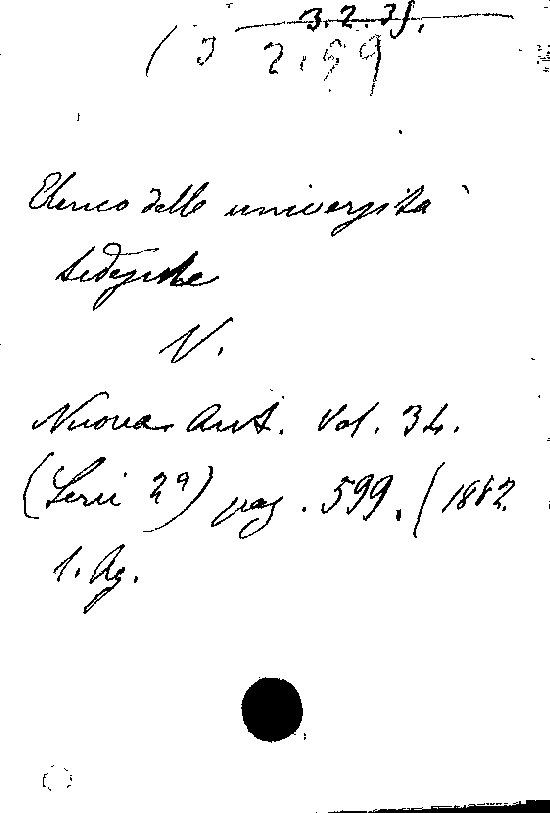 3.2.35.
(3 2.99
Elenco delle università
tedesche
V.
Nuova Ant. Vol. 34.
(Serie 2ª) pag. 599. (1882
1. Ag.